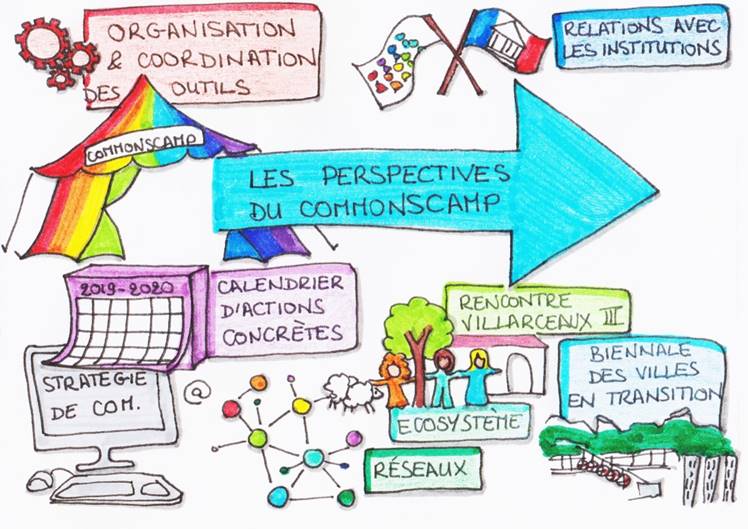 ORGANISATION
& COORDINATION
DES OUTILS
RELATIONS AVEC
LES INSTITUTIONS
COMMONSCAMP
LES PERSPECTIVES
DU COMMONSCAMP
2019-2020
CALENDRIER
D'ACTIONS
CONCRÈTES
RENCONTRE
VILLARCEAUX III
BIENNALE
DES VILLES
EN TRANSITION
STRATÉGIE
DE COM.
@
ECOSYSTÈME
RÉSEAUX